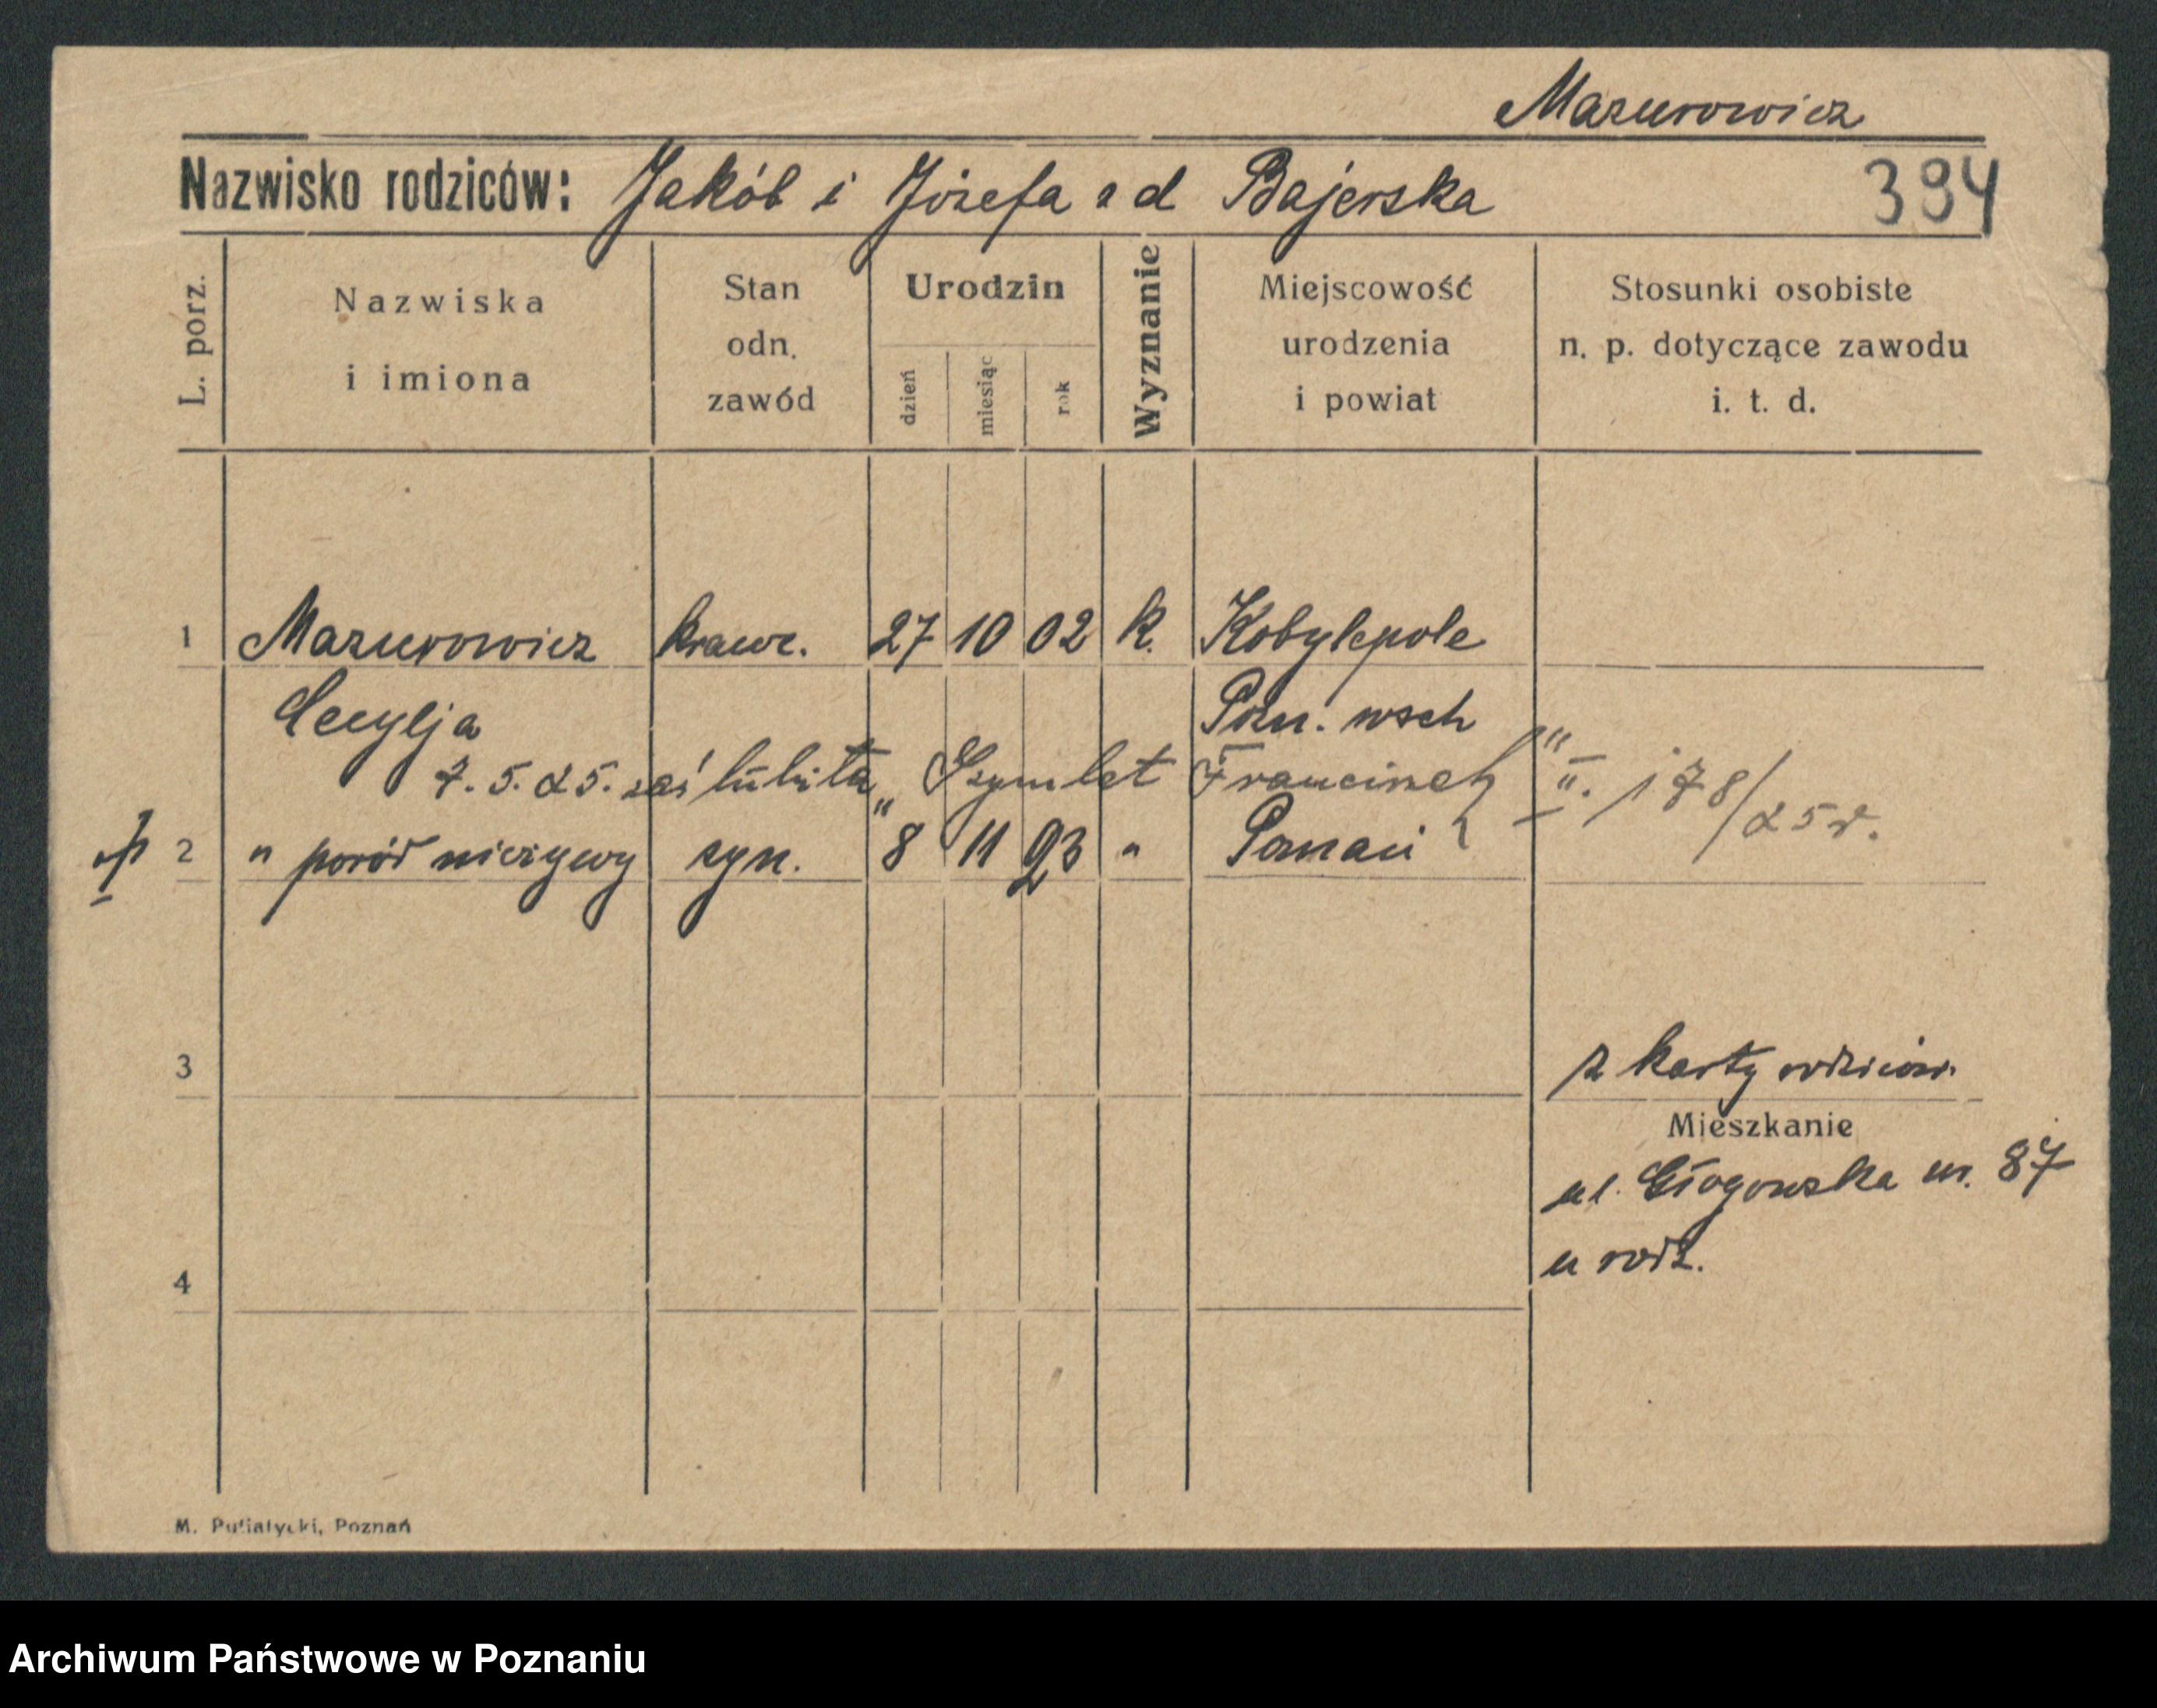 Mazurowicz
Nazwisko rodziców: Jakób i Józefa zd Bajerska
394
L. porz.
Nazwiska
i imiona
Stan
odn.
zawód
Urodzin
dzień
miesiąc
rok
Wyznanie
Miejscowość
urodzenia
i powiat
Stosunki osobiste
n. p. dotyczące zawodu
i. t. d.
1 Mazurowicz krawc. 27 10 02 k. Kobylepole
Cecylja Pozn. wsch
7. 5. 25. zaślubiła „Szymlet Franciszek" II. 178/25 r.
2 " poród nieżywy syn. 8 11 23 " Poznań
3
z karty rodziców.
Mieszkanie
ul. Głogowska nr. 87
u rodz.
4
M. Putiatycki, Poznań
Archiwum Państwowe w Poznaniu